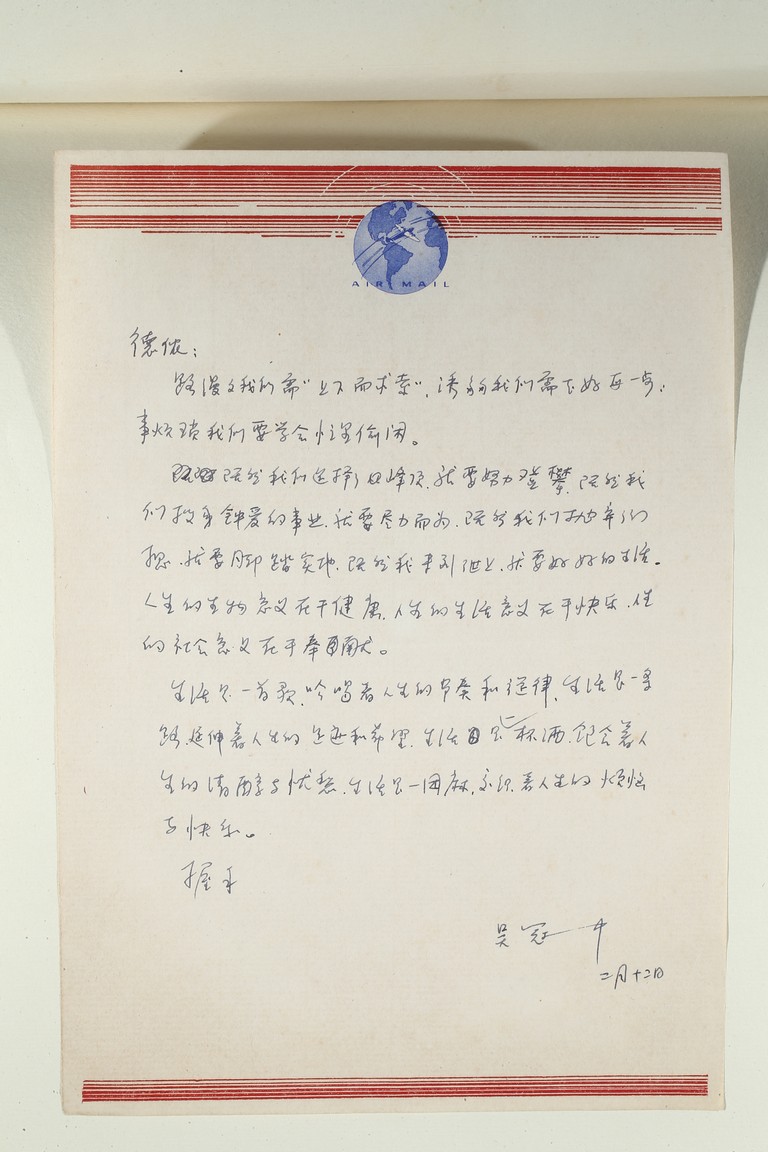 AIR MAIL
德侬：
路漫文我们需"上下而求索"，诱多我们需下好每一步；
事烦琐我们要学会忙里偷闲。
既然我们选择了峰顶，就要努力登攀，既然我
们投身钟爱的事业，就要尽力而为，既然我们抛弃了幻
想，就要脚踏实地，既然我来到世上，就要好好的生活。
人生的生物意义在于健康，人生的生活意义在于快乐，人生
的社会意义在于奉献。
生活是一首歌，吟唱着人生的节奏和旋律，生活是一条
路，延伸着人生的足迹和希望，生活是一杯酒，饱含着人
生的清醇与忧愁，生活是一团麻，交织着人生的烦恼
与快乐。
握手
吴冠中
二月十二日